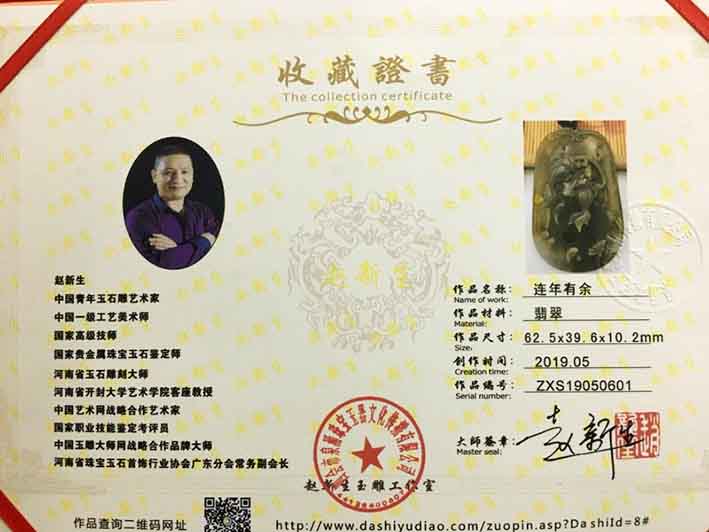 收藏證書
The collection certificate
赵新生
中国青年玉石雕艺术家
中国一级工艺美术师
国家高级技师
国家贵金属珠宝玉石鉴定师
河南省玉石雕刻大师
河南省开封大学艺术学院客座教授
中国艺术网战略合作艺术家
国家职业技能鉴定考评员
中国玉雕大师网战略合作品牌大师
河南省珠宝玉石首饰行业协会广东分会常务副会长
赵新生
作品名称: 连年有余
Name of work:
作品材料: 翡翠
Material:
作品尺寸: 62.5x39.6x10.2mm
Size:
创作时间: 2019.05
Creation time:
作品编号: ZXS19050601
Serial number:
大师签章: 赵新生
Master seal:
赵新生玉雕工作室
作品查询二维码网址 http://www.dashiyudiao.com/zuopin.asp?DashiId=8#